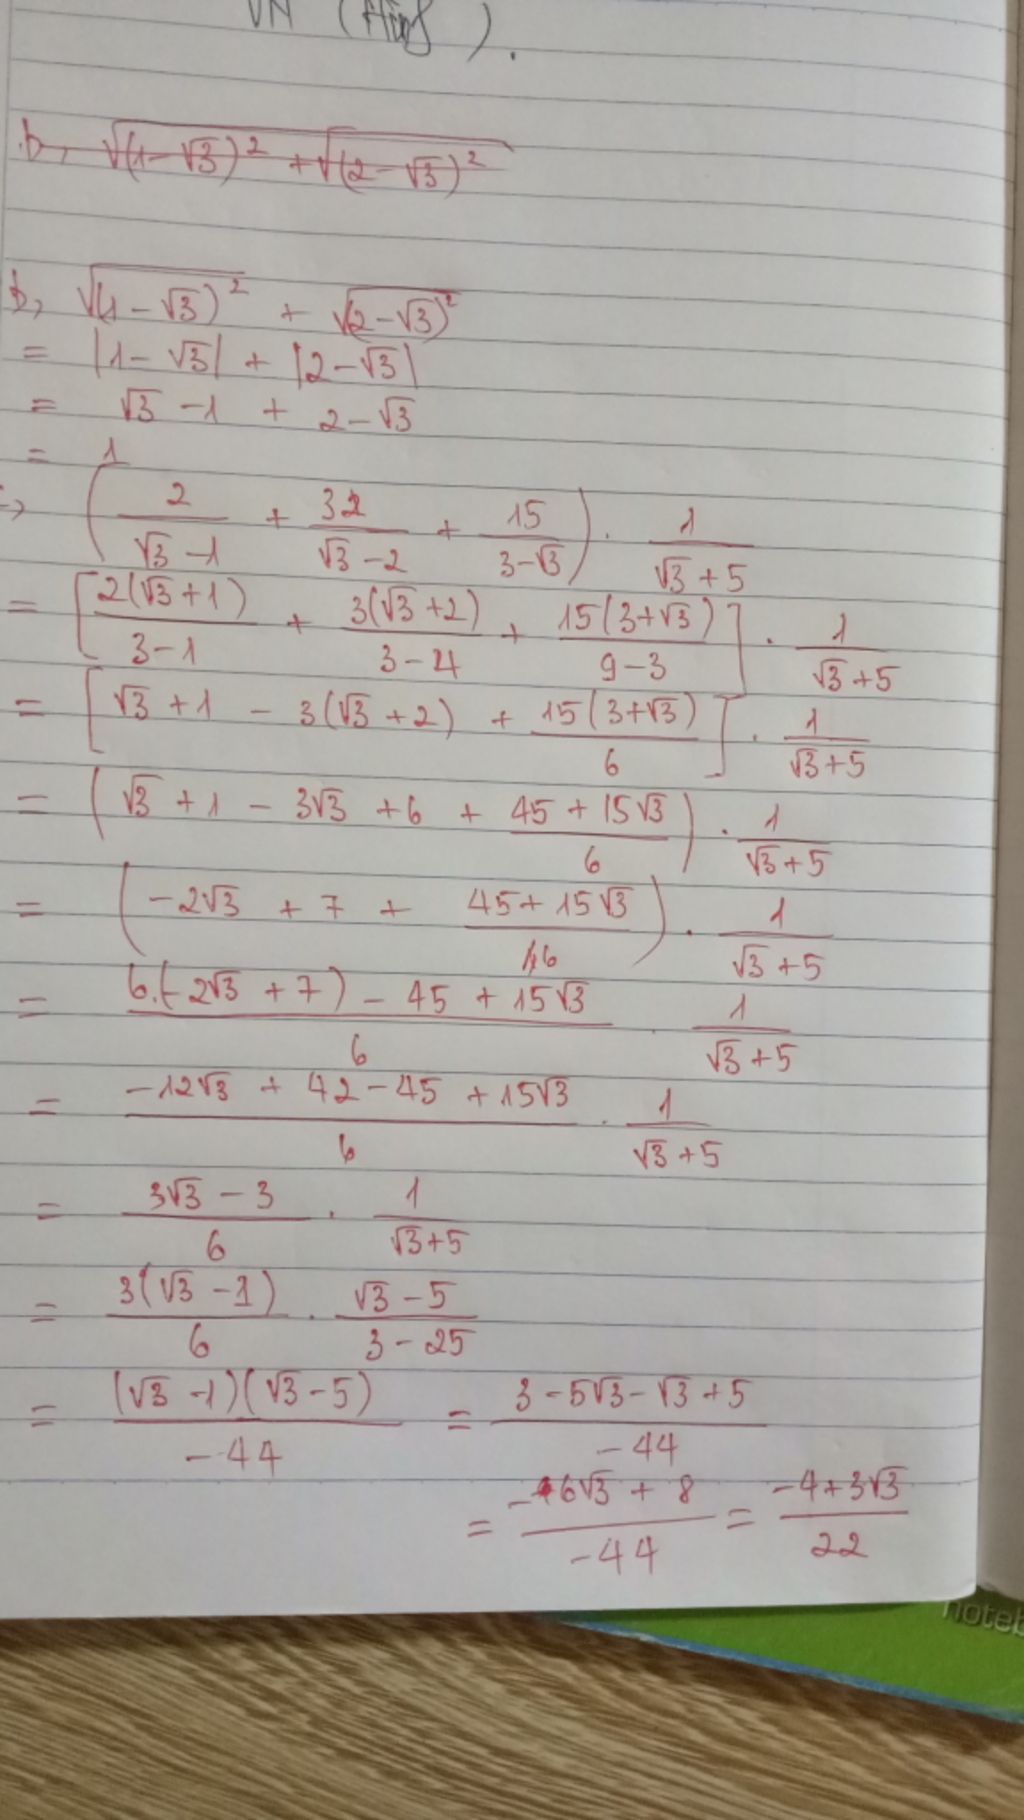 VN (
b, √(1-√3)² + √(2-√3)²
b, √(1-√3)² + √(2-√3)²
= |1-√3| + |2-√3|
= √3 -1 + 2-√3
= 1
(2/(√3-1) + 3/(√3-2) + 15/(3-√3)) . 1/(√3+5)
= [2(√3+1)/(3-1) + 3(√3+2)/(3-4) + 15(3+√3)/(9-3)] . 1/(√3+5)
= [√3+1 - 3(√3+2) + 15(3+√3)/6] . 1/(√3+5)
= (√3+1 - 3√3 +6 + (45+15√3)/6) . 1/(√3+5)
= (-2√3 + 7 + (45+15√3)/6) . 1/(√3+5)
= (6.(-2√3+7) - 45 + 15√3)/6 . 1/(√3+5)
= (-12√3 + 42 - 45 + 15√3)/6 . 1/(√3+5)
= (3√3-3)/6 . 1/(√3+5)
= 3(√3-1)/6 . (√3-5)/(3-25)
= (√3-1)(√3-5)/-44 = (3-5√3-√3+5)/-44
= (-6√3+8)/-44 = (-4+3√3)/22
noteb